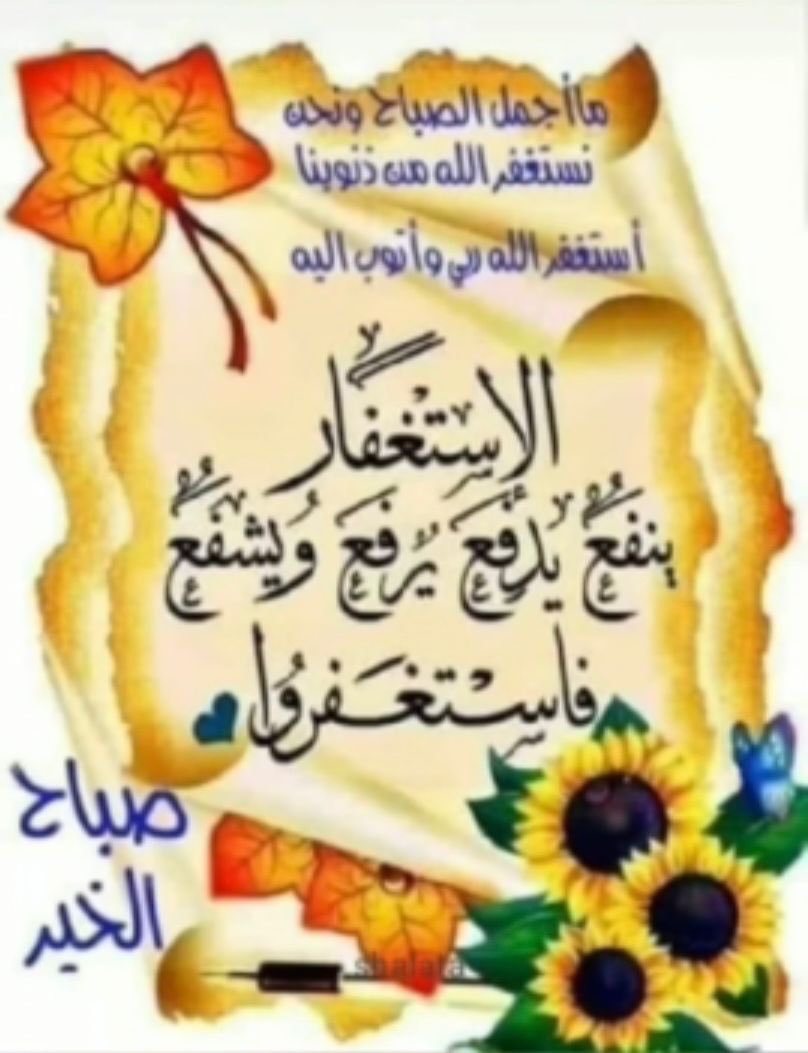 ما أجمل الصباح ونحن
نستغفر الله من ذنوبنا
أستغفر الله ربي وأتوب اليه
الاستغفار
ينفع يدفع يرفع ويشفع
فاستغفروا
صباح
الخير
shalata